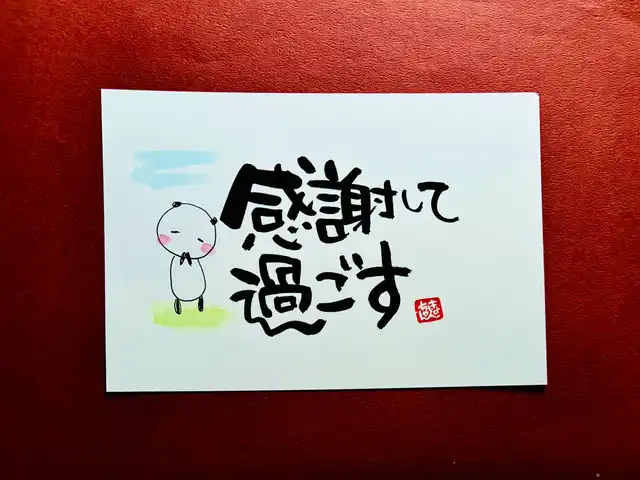 感謝して
過ごす